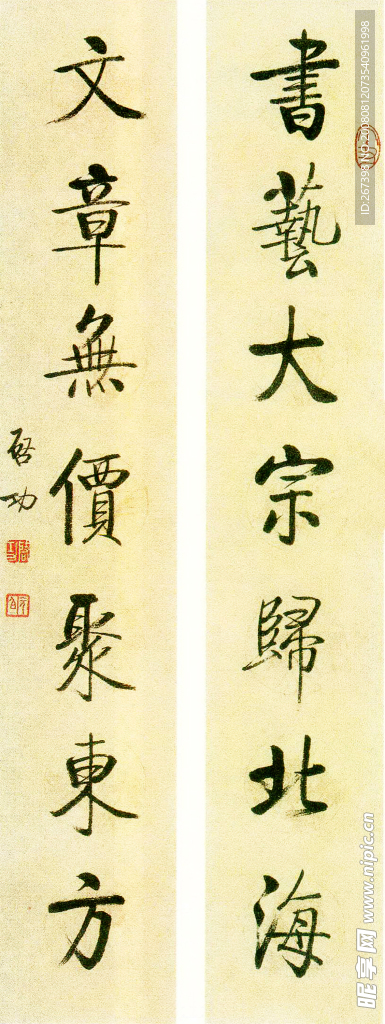 書藝大宗歸北海
文章無價聚東方
啓功
ID:267398 NO:20080812073540961998
昵享网 www.nipic.cn